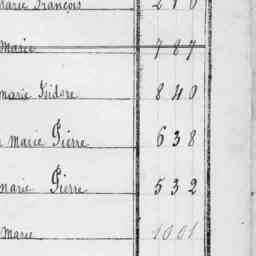 Marie François 2 1 6
Marie 787
marie Isidore 840
marie Pierre 638
marie Pierre 532
Marie 1001